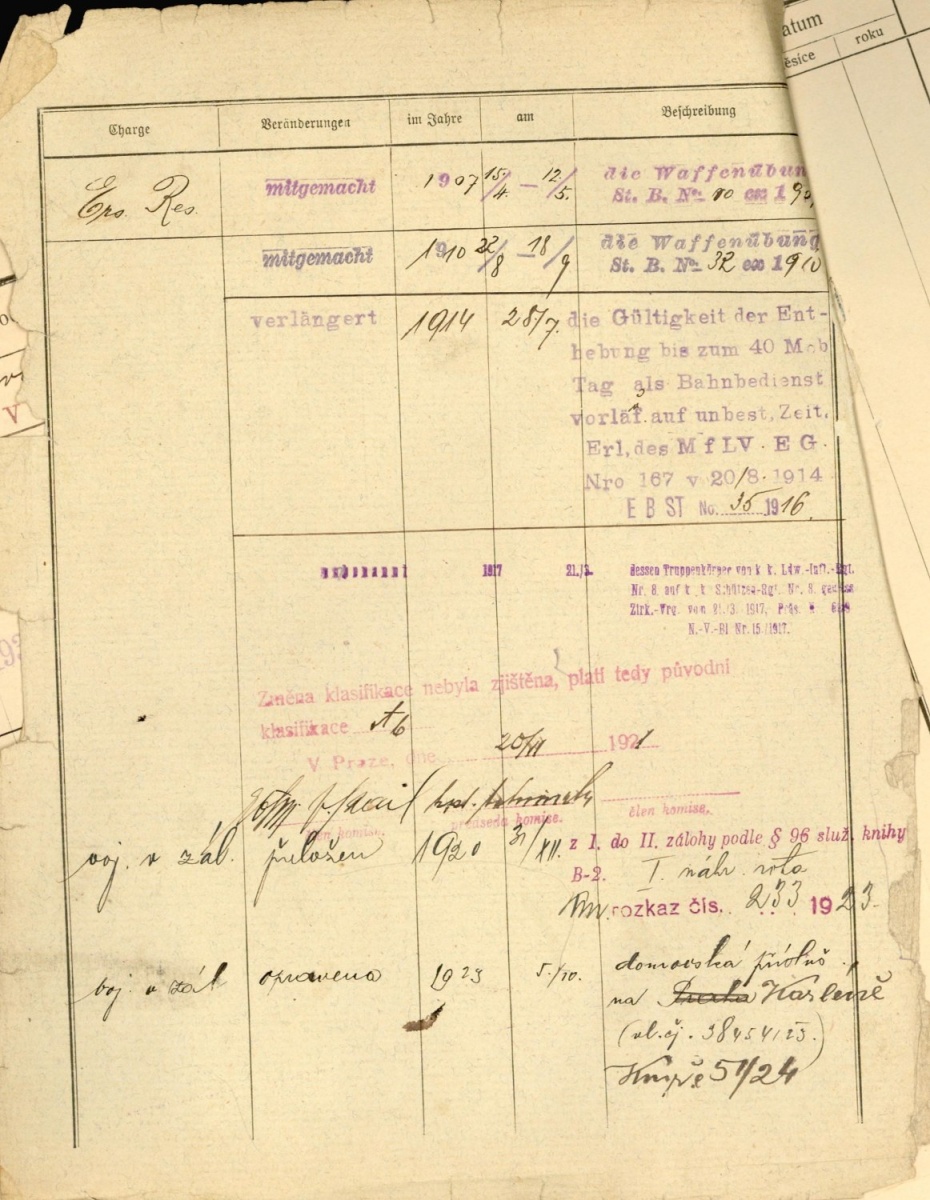 Charge Veränderungen im Jahre am Beschreibung
Ers. Res. mitgemacht 1907 15./4. — 12./5. die Waffenübun
St. B. No. 10 ex 190
mitgemacht 1910 22/8 — 18/9 die Waffenübung
St. B. No. 32 ex 1910
verlängert 1914 28/7. die Gültigkeit der Ent-
hebung bis zum 40 Mob
Tag als Bahnbedienst
vorläf. auf unbest, Zeit,
Erl, des M f LV. E G.
Nro 167 v 20/8. 1914
E B ST No. 35 1916.
1917 21./3. dessen Truppenkörper von k. k. Ldw.-Inft.-Rgt.
Nr. 8 auf k. k. Schützen-Rgt. Nr. 8.
Zirk.-Vrg. vom 21./3. 1917, Präs.
N.-V.-Bl Nr. 15/1917.
Změna klasifikace nebyla zjištěna, platí tedy původní
klasifikace A b
V Praze, dne 20/VI 1921
člen komise. předseda komise. člen komise.
voj. v zál. přeložen 1920 31/XII. z I. do II. zálohy podle § 96 služ. knihy
B-2. I. náhr. rota
rozkaz čís. 233 1923.
voj. v zál opraveno 1923 5./10. domovská přísluš.
na Karlíně
(vl. čj. 38454/23.)
51/24
atum
ěsíce roku
V